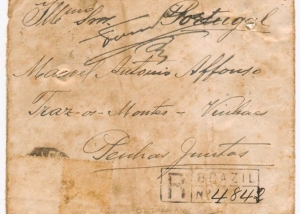 Illmo Snr Portugal
Manoel Antonio Affonso
Traz-os-Montes - Vinhaes
Penhas Juntas
R BRAZIL
Nº 4842